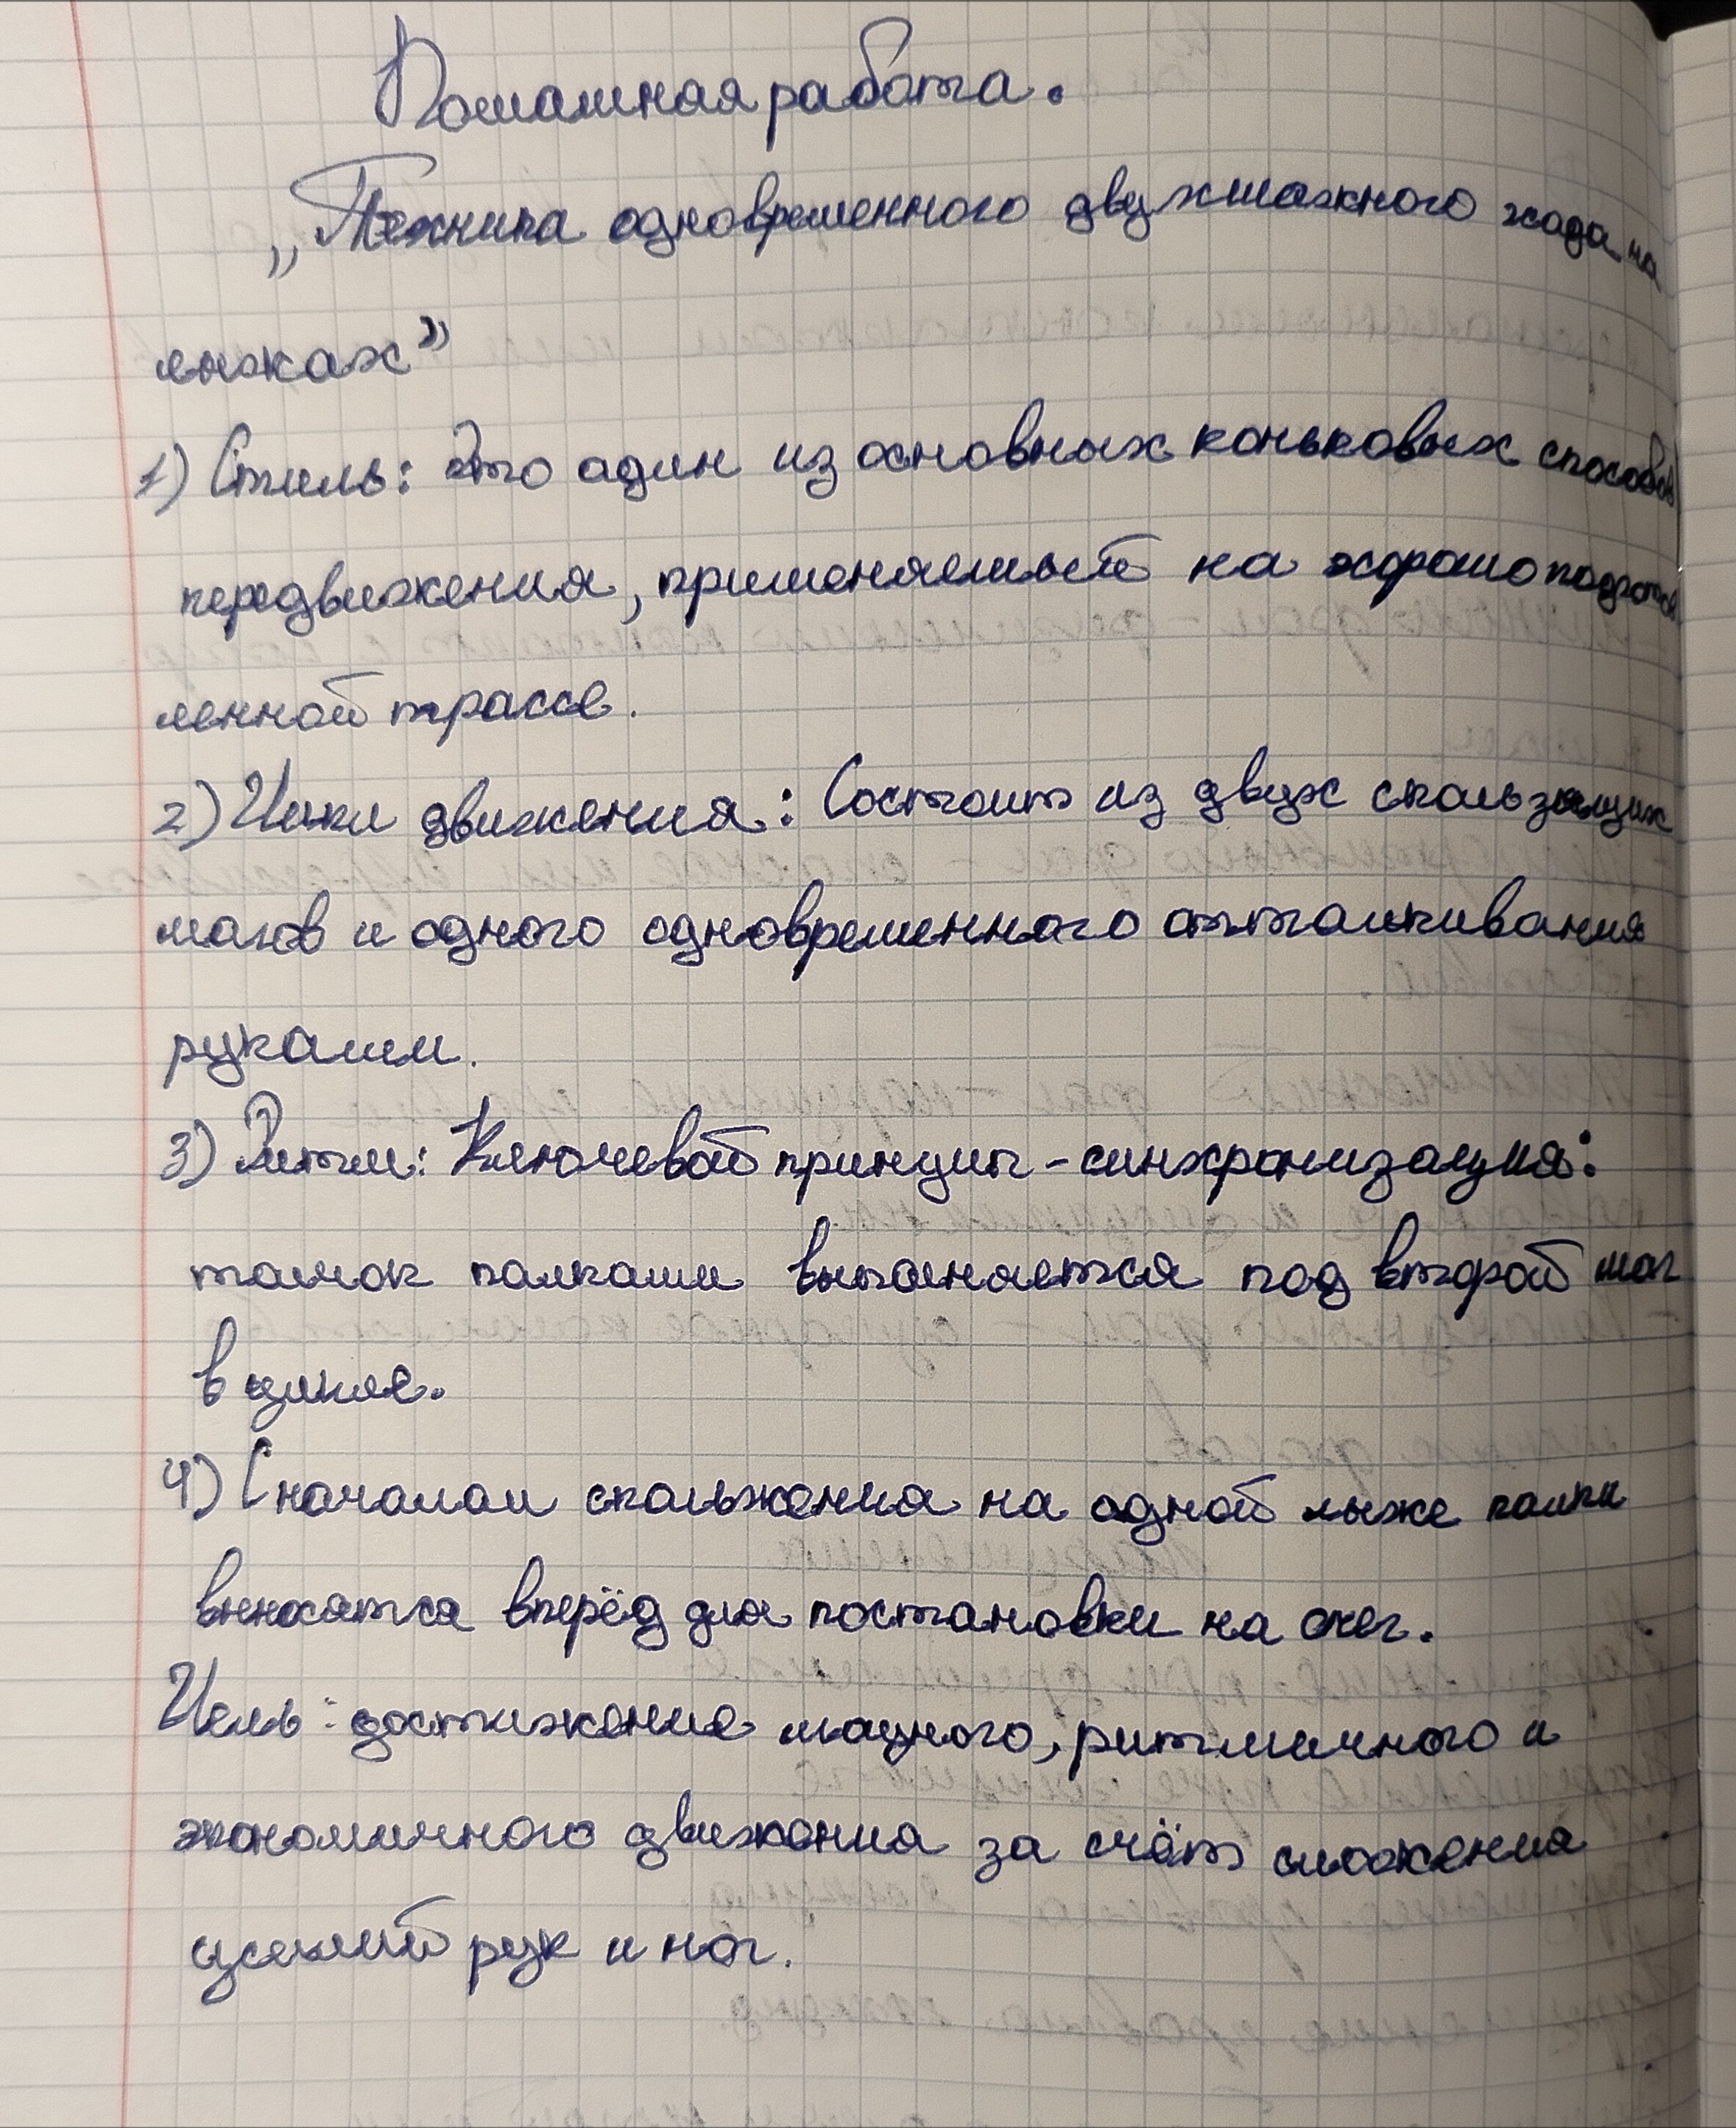 Домашная работа.
„Техника одновременного двухшажного хода на
лыжах”
1) Стиль: Это один из основных коньковых способов
передвижения, применяемый на хорошо подготов
ленной трассе.
2) Цикл движения: Состоит из двух скользящих
шагов и одного одновременного отталкивания
руками.
3) Ритм: Ключевой принцип - синхронизация:
толчок палками выполняется под второй шаг
в цикле.
4) С началом скольжения на одной лыже палки
выносятся вперёд для постановки на снег.
Цель: достижение мощного, ритмичного и
экономичного движения за счёт сложения
усилий рук и ног.